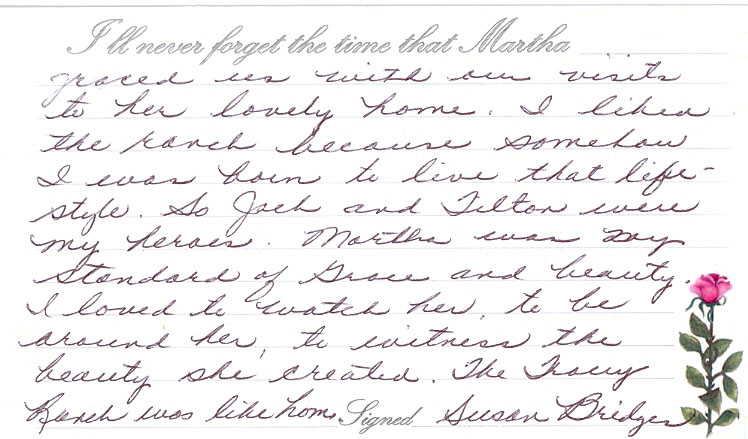 I'll never forget the time that Martha
graced us with our visits
to her lovely home. I liked
the ranch because somehow
I was born to live that life-
style. So Jack and Tilton were
my heroes. Martha was my
standard of Grace and beauty.
I loved to watch her, to be
around her, to witness the
beauty she created. The Tracy
Ranch was like home. Signed Susan Bridges